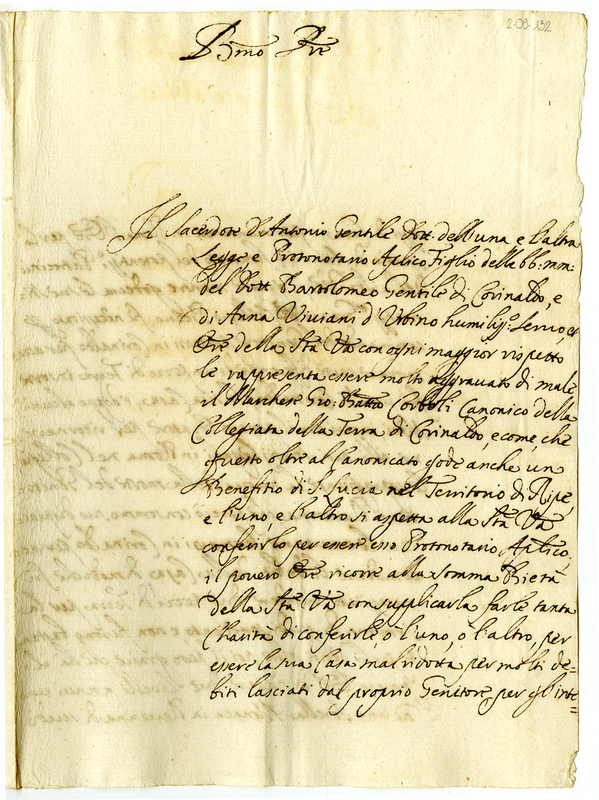 2-03-132
B.mo Pre
Il Sacerdote D. Antonio Gentile Dott: dell'una e l'altra
Legge e Protonotario Aplico Figlio delle bb: mm:
del Dott Bartolomeo Gentile di Corinaldo, e
di Anna Viviani d'Urbino humiliss:o Servo, et
Ore della Stà Va con ogni maggior rispetto
le rappresenta essere molto aggravato di male
il Marchese Gio: Batta Corboli Canonico della
Collegiata della Terra di Corinaldo, e come, che
questo oltre al Canonicato gode anche un
Benefitio di S. Lucia nel Territorio di Ripe,
e l'uno, e l'altro si aspetta alla Stà Va
conferirlo per essere esso Protonotario Aplico,
il povero Ore ricorre alla somma Pietà
della Stà Va con supplicarla farle tanta
Charità di conferirle, ò l'uno, ò l'altro, per
essere la sua Casa mal ridotta per molti de-
biti lasciati dal proprio Genitore, per gl'inte=